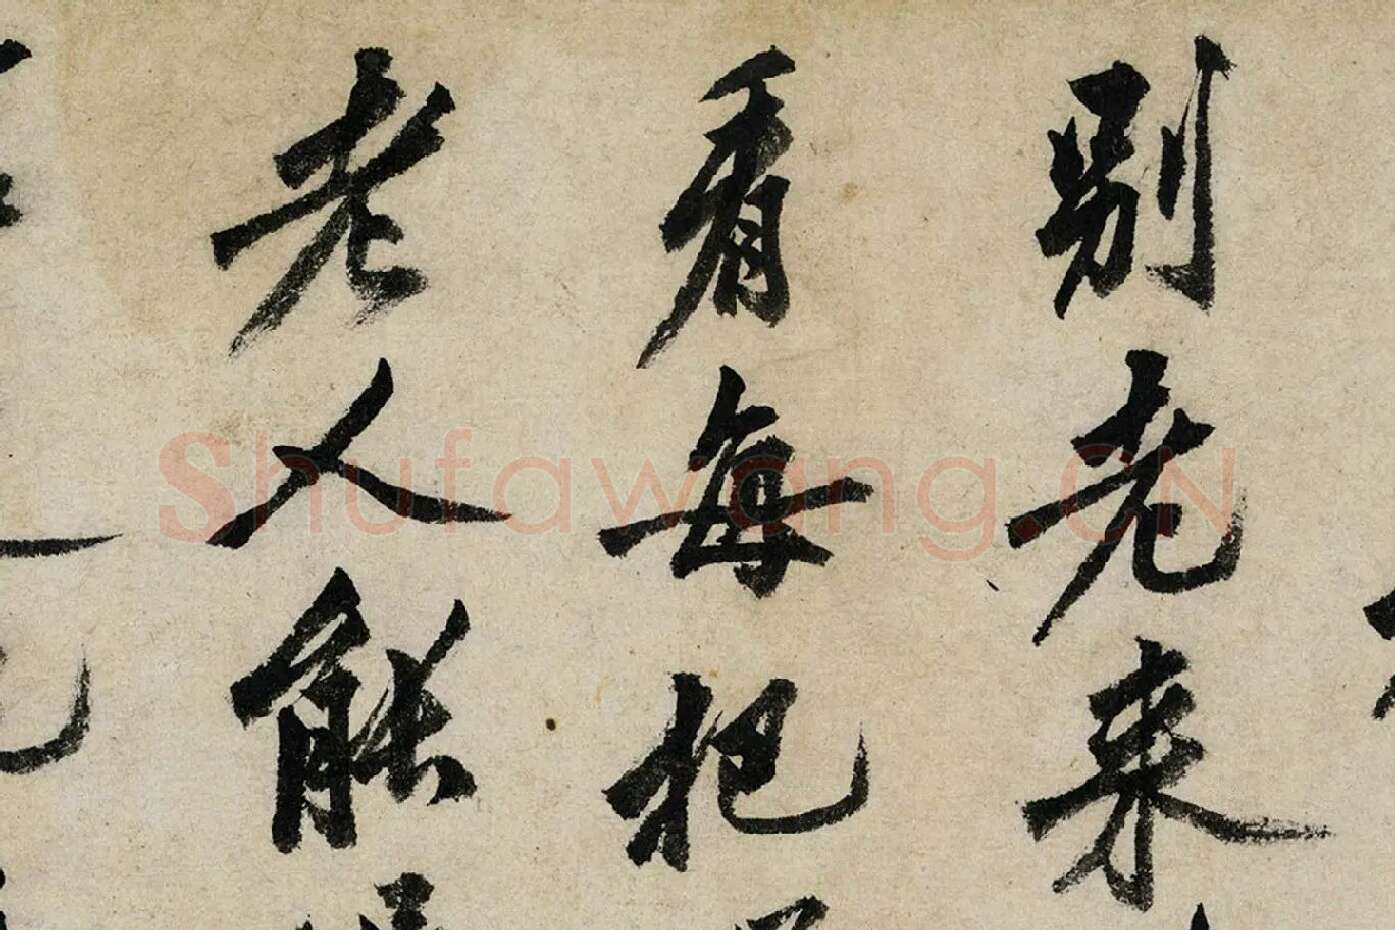 別老来
看每把
老人能
Shufawang.CN